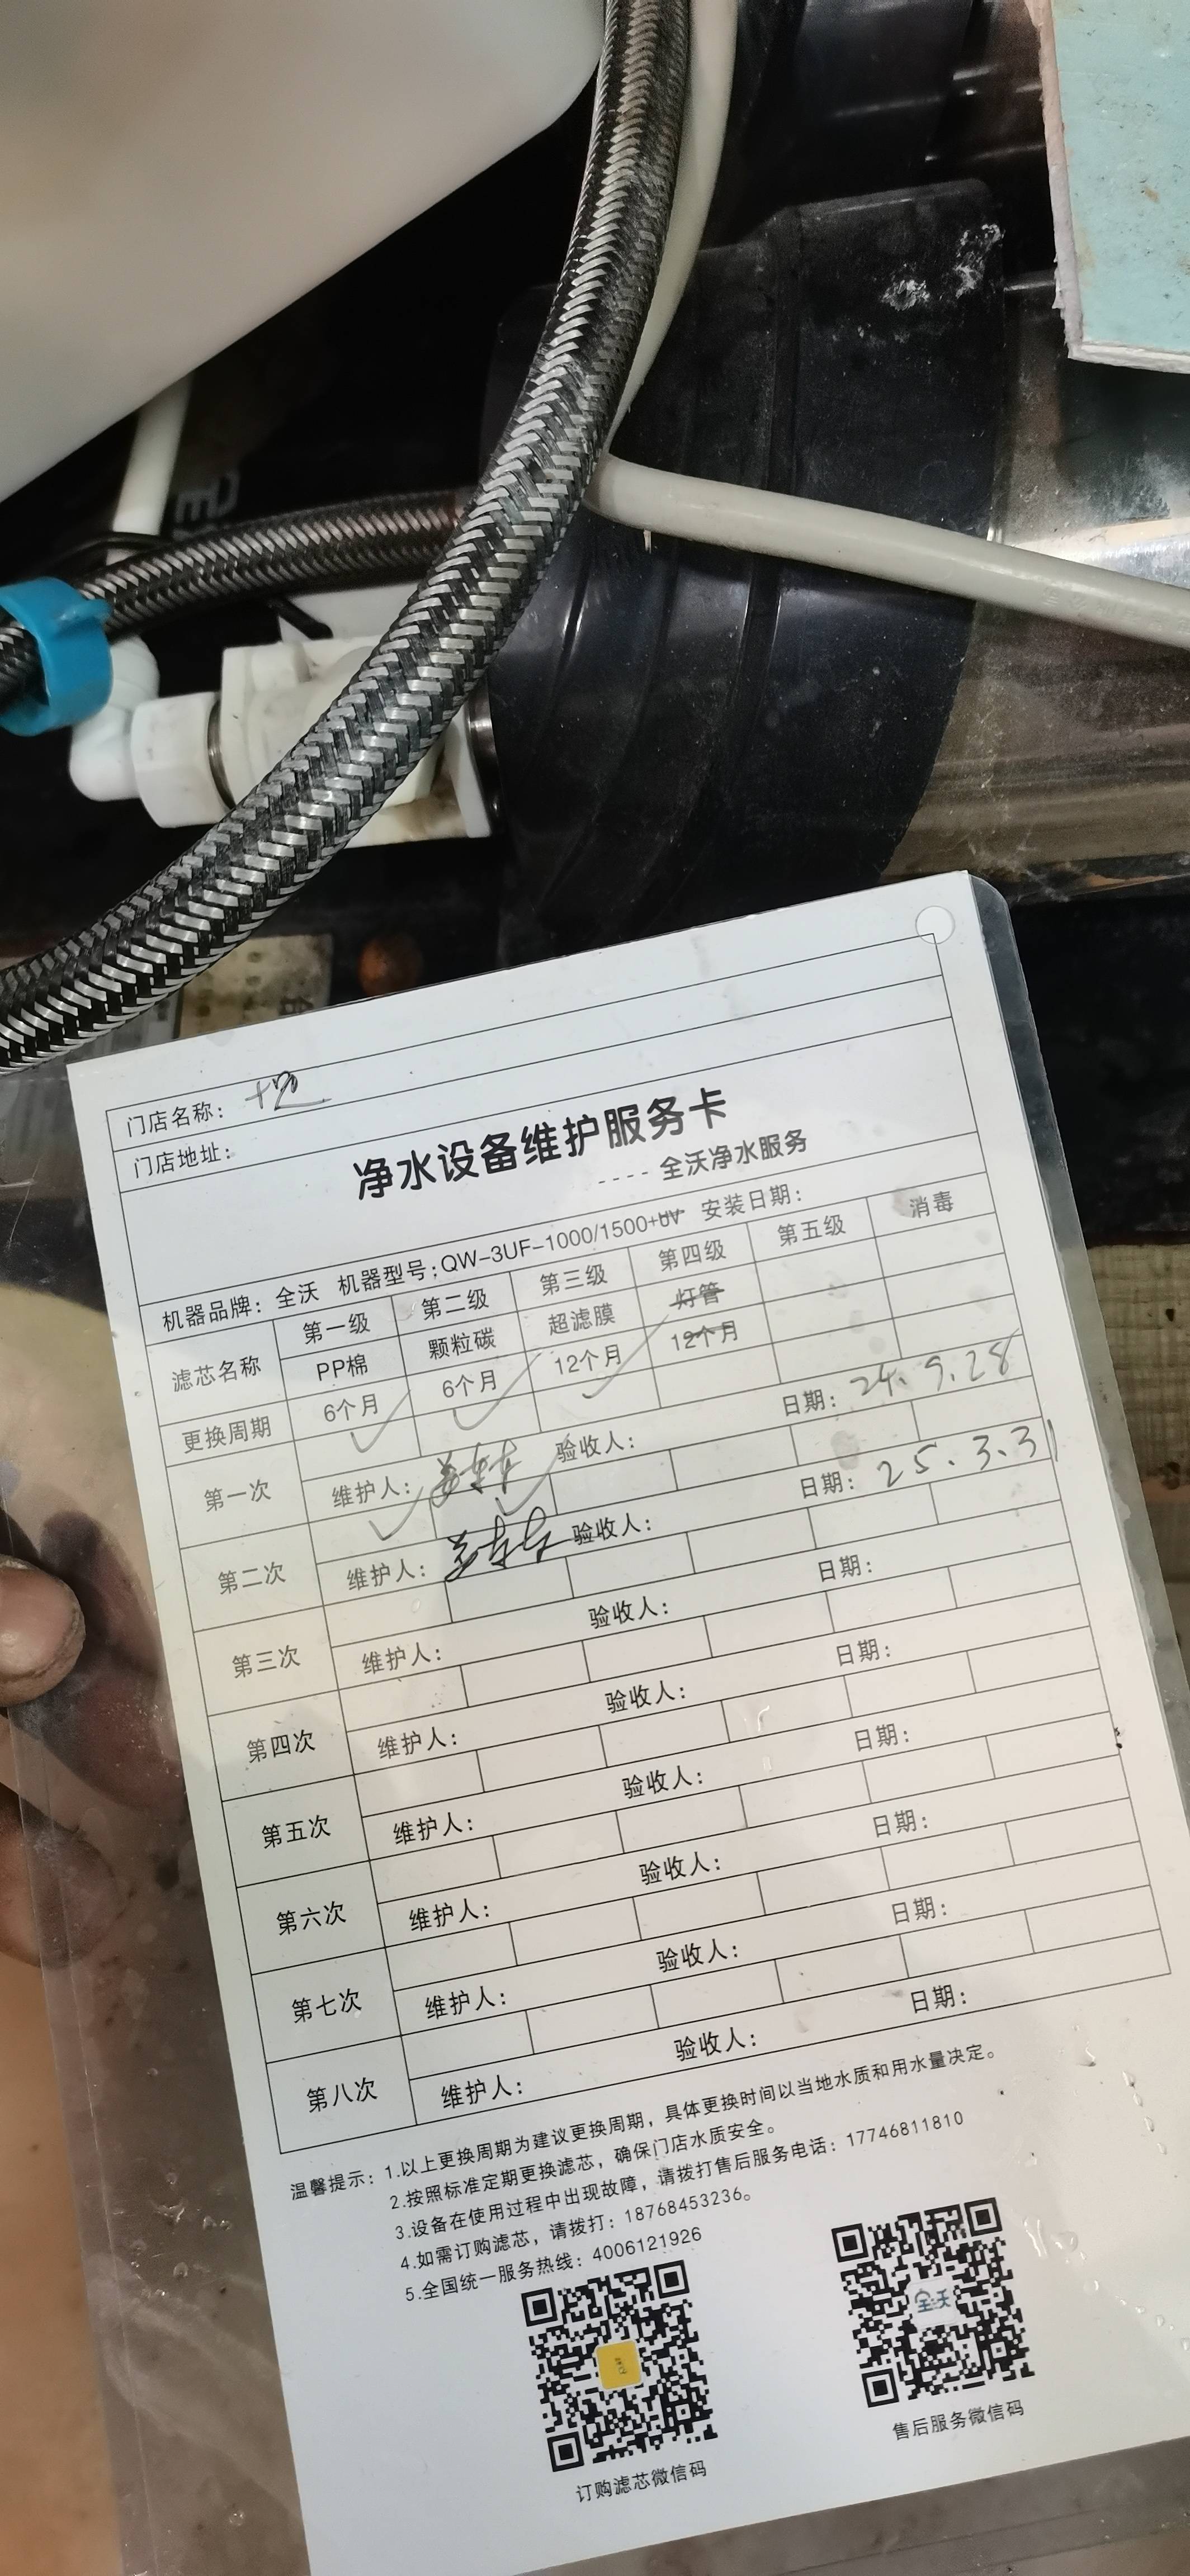 门店名称:
门店地址:
净水设备维护服务卡
----全沃净水服务
机器品牌:全沃 机器型号:QW-3UF-1000/1500+UV 安装日期:
滤芯名称 第一级 第二级 第三级 第四级 第五级 消毒
PP棉 颗粒碳 超滤膜 灯管
更换周期 6个月 6个月 12个月 12个月
第一次 ✓ ✓ ✓
维护人: 验收人: 日期:24.9.28
第二次 ✓ ✓
维护人: 验收人: 日期:25.3.31
第三次
维护人: 验收人: 日期:
第四次
维护人: 验收人: 日期:
第五次
维护人: 验收人: 日期:
第六次
维护人: 验收人: 日期:
第七次
维护人: 验收人: 日期:
第八次
维护人: 验收人: 日期:
温馨提示:1.以上更换周期为建议更换周期,具体更换时间以当地水质和用水量决定。
2.按照标准定期更换滤芯,确保门店水质安全。
3.设备在使用过程中出现故障,请拨打售后服务电话:17746811810
4.如需订购滤芯,请拨打:18768453236。
5.全国统一服务热线:4006121926
全沃
订购滤芯微信码
售后服务微信码